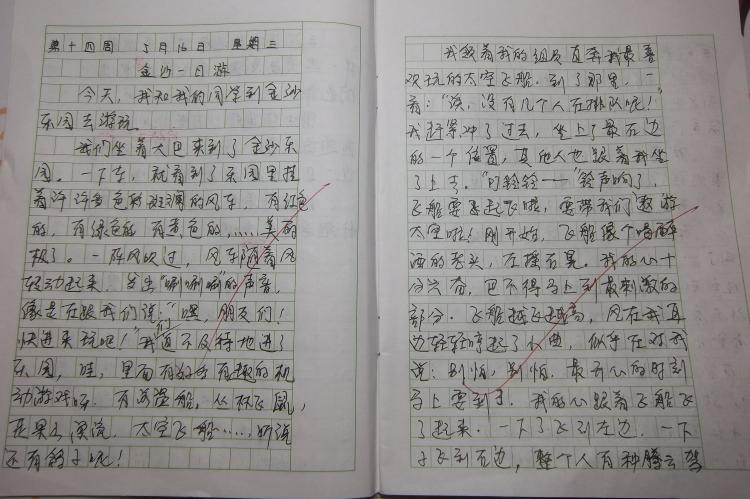 第十四周 5月16日 星期三
金沙一日游
今天,我和我的同学到金沙
乐园去游玩。
我们坐着大巴来到了金沙乐
园。一下车,就看到了乐园里挂
着许许多色彩斑斓的风车,有红色
的,有绿色的,有黄色的……美的
极了。一阵风吹过,风车随着风
转动起来,发出“唰唰唰”的声音,
像是在跟我们说:“嘿,朋友们!
快进来玩吧!”我们迫不及待地进了
乐园,哇,里面有好多有趣的机
动游戏呀,有海盗船,丛林飞鼠,
花果山漂流,太空飞船……听说
还有鸽子呢!
我跟着我的组员直奔我最喜
欢玩的太空飞船。到了那里,一
看:“咦,没有几个人在排队呢!”
我赶紧冲了过去,坐上了最右边
的一个位置,其他人也跟着我坐
了上去。“叮铃铃——”铃声响了,
飞船要起飞啦,要带我们遨游
太空啦!刚开始,飞船像个喝醉
酒的老头,左摇右晃。我的心十
分兴奋,巴不得马上到最刺激的
部分。飞船越飞越高,风在我耳
边轻轻哼起了小曲,似乎在对我
说:别怕,别怕,最开心的时刻
马上要到了。我的心跟着飞船飞
了起来。一下子飞到左边,一下
子飞到右边,整个人有种腾云驾